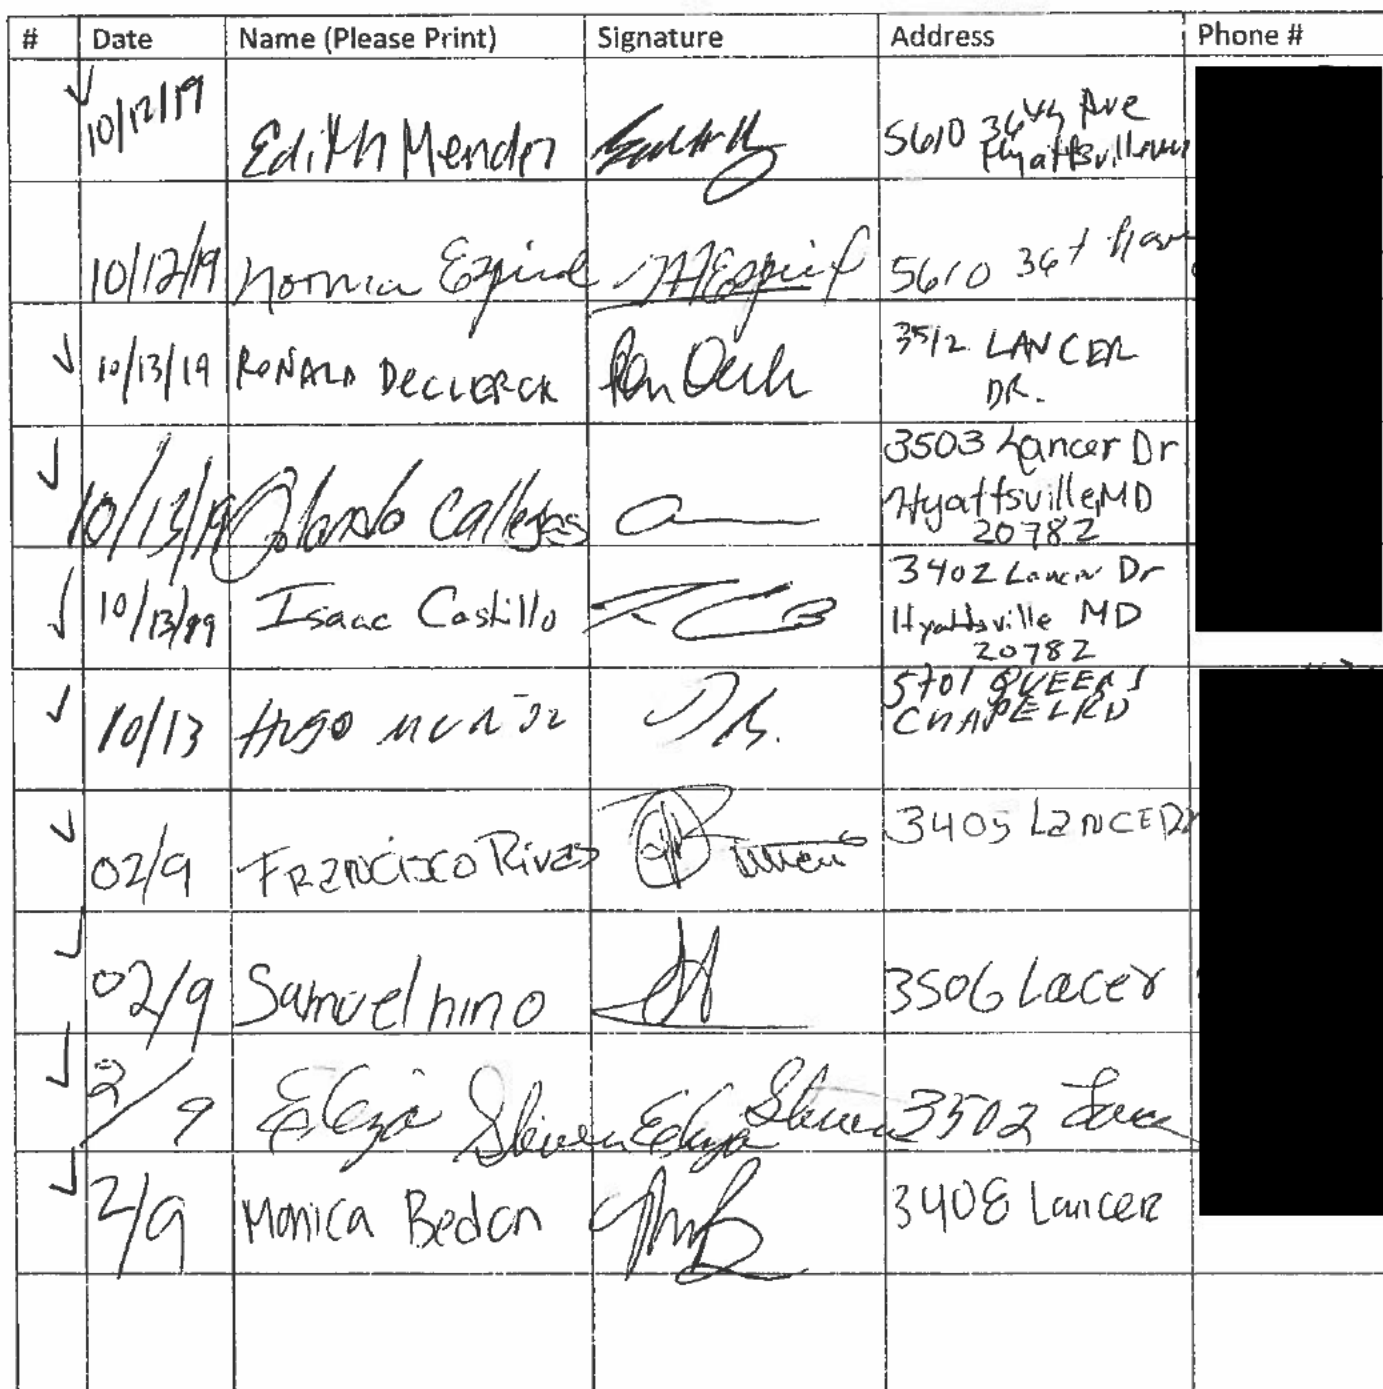 # Date Name (Please Print) Signature Address Phone #
10/12/19 Edith Mendez 5610 36th Ave
Hyattsville
10/12/19 Norma 5610 36t
10/13/19 RONALD DECLERCK Ron 3512 LANCER
DR.
10/13/19 Orlando Callejas 3503 Lancer Dr
Hyattsville, MD
20782
10/13/19 Isaac Castillo 3402 Lancer Dr
Hyattsville MD
20782
10/13 Hugo muñoz 5701 QUEENS
CHAPEL RD
02/9 FRANCISCO Rivas 3405 LANCE DR
02/9 Samuel nino 3506 Lacer
2/9 Steven Steven 3502
2/9 Monica Bedon 3408 Lancer